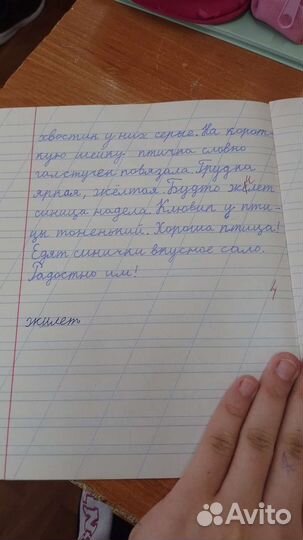 хвостик у них серые. На корот-
кую шейку птичка словно
галстучек повязала. Грудка
яркая, жёлтая. Будто жилет
синица надела. Клювик у пти-
цы тоненький. Хороша птица!
Едят синички вкусное сало.
Радостно им!
4
жилет
Avito